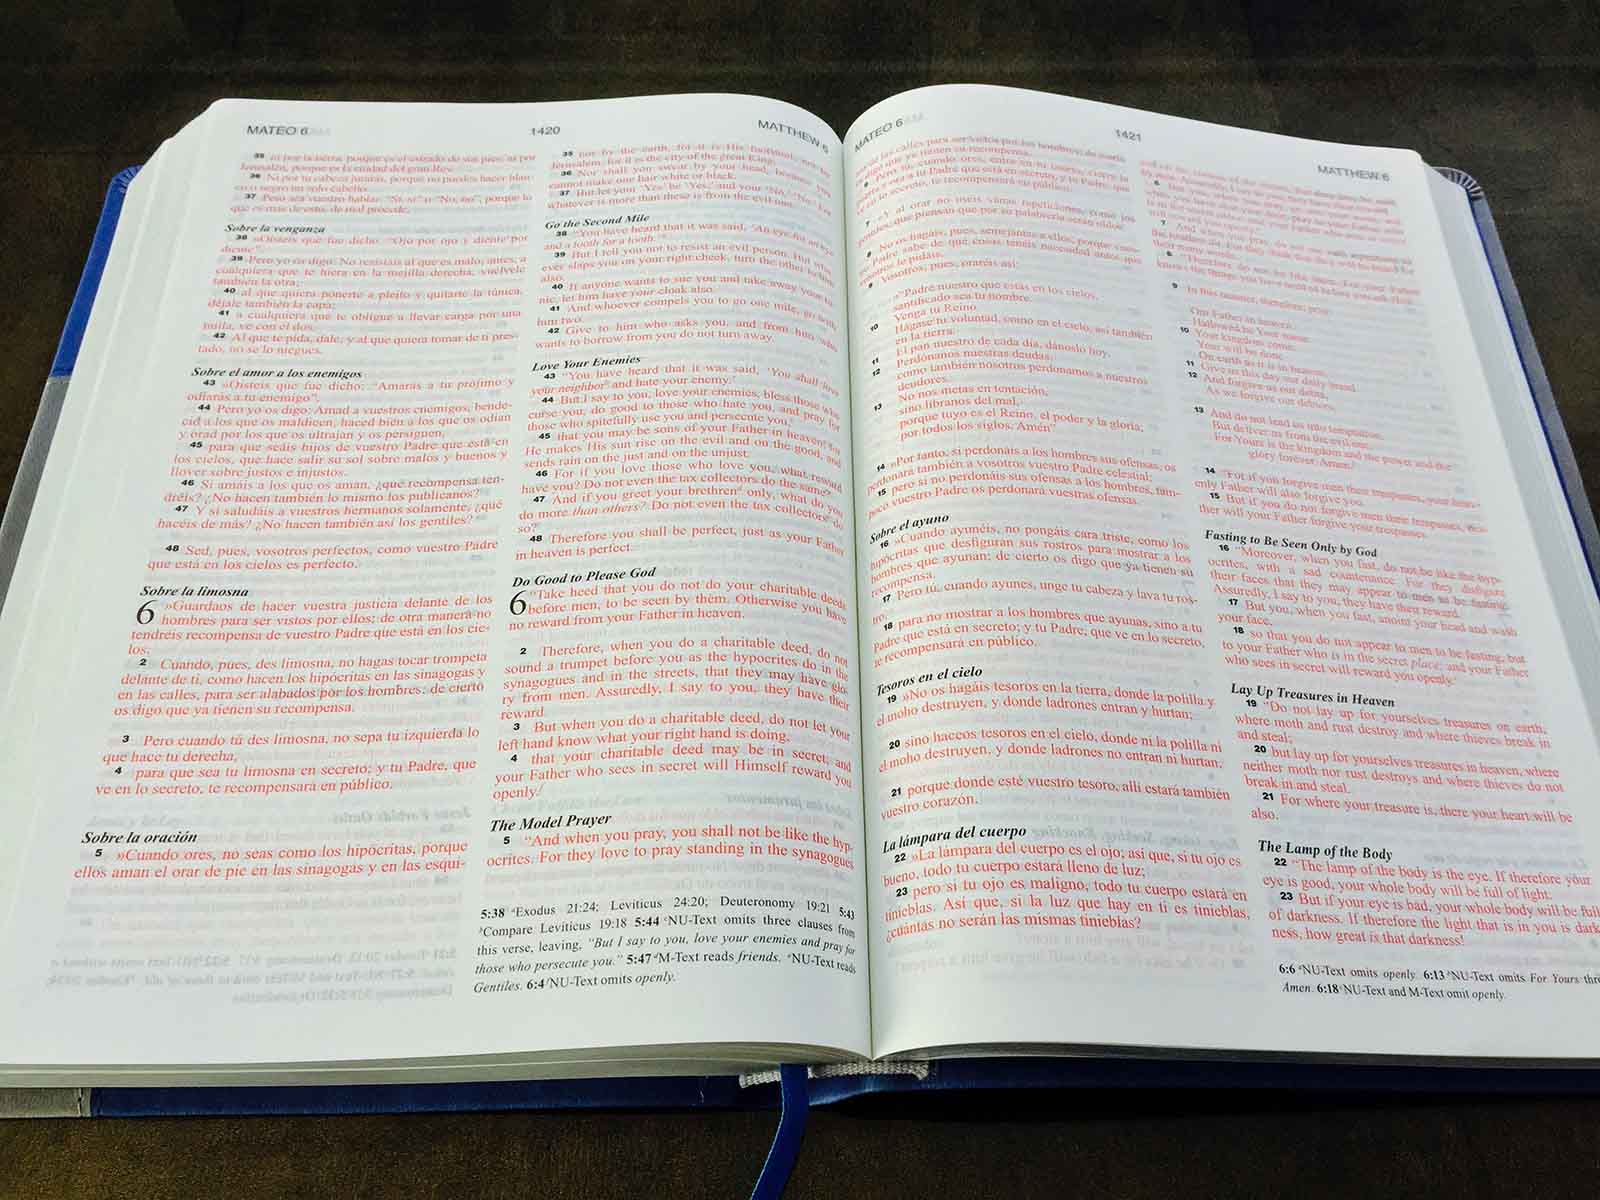 MATEO 6
1420
MATTHEW 6
35 ni por la tierra, porque es el estrado de sus pies; ni por
Jerusalén, porque es la ciudad del gran Rey.
36 Ni por tu cabeza jurarás, porque no puedes hacer blan-
co o negro un solo cabello.
37 Pero sea vuestro hablar: “Sí, sí” o “No, no”, porque lo
que es más de esto, de mal procede.
Sobre la venganza
38 »Oísteis que fue dicho: “Ojo por ojo y diente por
diente”.
39 Pero yo os digo: No resistáis al que es malo; antes, a
cualquiera que te hiera en la mejilla derecha, vuélvele
también la otra;
40 al que quiera ponerte a pleito y quitarte la túnica,
déjale también la capa;
41 a cualquiera que te obligue a llevar carga por una
milla, ve con él dos.
42 Al que te pida, dale; y al que quiera tomar de ti pres-
tado, no se lo niegues.
Sobre el amor a los enemigos
43 »Oísteis que fue dicho: “Amarás a tu prójimo y
odiarás a tu enemigo”.
44 Pero yo os digo: Amad a vuestros enemigos, bende-
cid a los que os maldicen, haced bien a los que os odian
y orad por los que os ultrajan y os persiguen,
45 para que seáis hijos de vuestro Padre que está en
los cielos, que hace salir su sol sobre malos y buenos y
llover sobre justos e injustos.
46 Si amáis a los que os aman, ¿qué recompensa ten-
dréis? ¿No hacen también lo mismo los publicanos?
47 Y si saludáis a vuestros hermanos solamente, ¿qué
hacéis de más? ¿No hacen también así los gentiles?
48 Sed, pues, vosotros perfectos, como vuestro Padre
que está en los cielos es perfecto.
Sobre la limosna
6 »Guardaos de hacer vuestra justicia delante de los
hombres para ser vistos por ellos; de otra manera no
tendréis recompensa de vuestro Padre que está en los cie-
los.
2 Cuando, pues, des limosna, no hagas tocar trompeta
delante de ti, como hacen los hipócritas en las sinagogas y
en las calles, para ser alabados por los hombres; de cierto
os digo que ya tienen su recompensa.
3 Pero cuando tú des limosna, no sepa tu izquierda lo
que hace tu derecha,
4 para que sea tu limosna en secreto; y tu Padre, que
ve en lo secreto, te recompensará en público.
Sobre la oración
5 »Cuando ores, no seas como los hipócritas, porque
ellos aman el orar de pie en las sinagogas y en las esqui-
35 nor by the earth, for it is His footstool; nor by
Jerusalem, for it is the city of the great King.
36 Nor shall you swear by your head, because you
cannot make one hair white or black.
37 But let your ‘Yes’ be ‘Yes,’ and your ‘No,’ ‘No.’ For
whatever is more than these is from the evil one.
Go the Second Mile
38 “You have heard that it was said, ‘An eye for an eye
and a tooth for a tooth.’
39 But I tell you not to resist an evil person. But who-
ever slaps you on your right cheek, turn the other to him
also.
40 If anyone wants to sue you and take away your tu-
nic, let him have your cloak also.
41 And whoever compels you to go one mile, go with
him two.
42 Give to him who asks you, and from him who
wants to borrow from you do not turn away.
Love Your Enemies
43 “You have heard that it was said, ‘You shall love
your neighbor and hate your enemy.’
44 But I say to you, love your enemies, bless those who
curse you, do good to those who hate you, and pray for
those who spitefully use you and persecute you,
45 that you may be sons of your Father in heaven; for
He makes His sun rise on the evil and on the good, and
sends rain on the just and on the unjust.
46 For if you love those who love you, what reward
have you? Do not even the tax collectors do the same?
47 And if you greet your brethren only, what do you
do more than others? Do not even the tax collectors do
so?
48 Therefore you shall be perfect, just as your Father
in heaven is perfect.
Do Good to Please God
6 “Take heed that you do not do your charitable deeds
before men, to be seen by them. Otherwise you have
no reward from your Father in heaven.
2 Therefore, when you do a charitable deed, do not
sound a trumpet before you as the hypocrites do in the
synagogues and in the streets, that they may have glo-
ry from men. Assuredly, I say to you, they have their
reward.
3 But when you do a charitable deed, do not let your
left hand know what your right hand is doing,
4 that your charitable deed may be in secret; and
your Father who sees in secret will Himself reward you
openly.
The Model Prayer
5 “And when you pray, you shall not be like the hyp-
ocrites. For they love to pray standing in the synagogues
5:38 Exodus 21:24; Leviticus 24:20; Deuteronomy 19:21 5:43
Compare Leviticus 19:18 5:44 NU-Text omits three clauses from
this verse, leaving, “But I say to you, love your enemies and pray for
those who persecute you.” 5:47 M-Text reads friends. NU-Text reads
Gentiles. 6:4 NU-Text omits openly.
MATEO 6
1421
MATTHEW 6
nas de las calles para ser vistos por los hombres; de cierto
os digo que ya tienen su recompensa.
6 Pero tú, cuando ores, entra en tu cuarto, cierra la
puerta y ora a tu Padre que está en secreto; y tu Padre, que
ve en lo secreto, te recompensará en público.
7 »Y al orar no uséis vanas repeticiones, como los
gentiles, que piensan que por su palabrería serán oídos.
8 No os hagáis, pues, semejantes a ellos, porque vues-
tro Padre sabe de qué cosas tenéis necesidad antes que
vosotros le pidáis.
9 Vosotros, pues, oraréis así:
»“Padre nuestro que estás en los cielos,
santificado sea tu nombre.
10 Venga tu Reino.
Hágase tu voluntad, como en el cielo, así también
en la tierra.
11 El pan nuestro de cada día, dánoslo hoy.
12 Perdónanos nuestras deudas,
como también nosotros perdonamos a nuestros
deudores.
13 No nos metas en tentación,
sino líbranos del mal,
porque tuyo es el Reino, el poder y la gloria,
por todos los siglos. Amén”
14 »Por tanto, si perdonáis a los hombres sus ofensas, os
perdonará también a vosotros vuestro Padre celestial;
15 pero si no perdonáis sus ofensas a los hombres, tam-
poco vuestro Padre os perdonará vuestras ofensas.
Sobre el ayuno
16 »Cuando ayunéis, no pongáis cara triste, como los
hipócritas que desfiguran sus rostros para mostrar a los
hombres que ayunan; de cierto os digo que ya tienen su
recompensa.
17 Pero tú, cuando ayunes, unge tu cabeza y lava tu ros-
tro,
18 para no mostrar a los hombres que ayunas, sino a tu
Padre que está en secreto; y tu Padre, que ve en lo secreto,
te recompensará en público.
Tesoros en el cielo
19 »No os hagáis tesoros en la tierra, donde la polilla y
el moho destruyen, y donde ladrones entran y hurtan;
20 sino haceos tesoros en el cielo, donde ni la polilla ni
el moho destruyen, y donde ladrones no entran ni hurtan,
21 porque donde esté vuestro tesoro, allí estará también
vuestro corazón.
La lámpara del cuerpo
22 »La lámpara del cuerpo es el ojo; así que, si tu ojo es
bueno, todo tu cuerpo estará lleno de luz;
23 pero si tu ojo es maligno, todo tu cuerpo estará en
tinieblas. Así que, si la luz que hay en ti es tinieblas,
¿cuántas no serán las mismas tinieblas?
6 But you, when you pray,
7 And when you pray, do not use vain repetitions as
the heathen do. For they think that they will be heard for
their many words.
8 “Therefore do not be like them. For your Father
knows the things you have need of before you ask Him.
9 In this manner, therefore, pray:
Our Father in heaven,
Hallowed be Your name.
10 Your kingdom come.
Your will be done
On earth as it is in heaven.
11 Give us this day our daily bread.
12 And forgive us our debts,
As we forgive our debtors.
13 And do not lead us into temptation,
But deliver us from the evil one.
For Yours is the kingdom and the power and the
glory forever. Amen.
14 “For if you forgive men their trespasses, your heav-
enly Father will also forgive you.
15 But if you do not forgive men their trespasses, nei-
ther will your Father forgive your trespasses.
Fasting to Be Seen Only by God
16 “Moreover, when you fast, do not be like the hyp-
ocrites, with a sad countenance. For they disfigure
their faces that they may appear to men to be fasting.
Assuredly, I say to you, they have their reward.
17 But you, when you fast, anoint your head and wash
your face,
18 so that you do not appear to men to be fasting, but
to your Father who is in the secret place; and your Father
who sees in secret will reward you openly.
Lay Up Treasures in Heaven
19 “Do not lay up for yourselves treasures on earth,
where moth and rust destroy and where thieves break in
and steal;
20 but lay up for yourselves treasures in heaven, where
neither moth nor rust destroys and where thieves do not
break in and steal.
21 For where your treasure is, there your heart will be
also.
The Lamp of the Body
22 “The lamp of the body is the eye. If therefore your
eye is good, your whole body will be full of light.
23 But if your eye is bad, your whole body will be full
of darkness. If therefore the light that is in you is dark
ness, how great is that darkness!
6:6 NU-Text omits openly. 6:13 NU-Text omits For Yours
Amen. 6:18 NU-Text and M-Text omit openly.